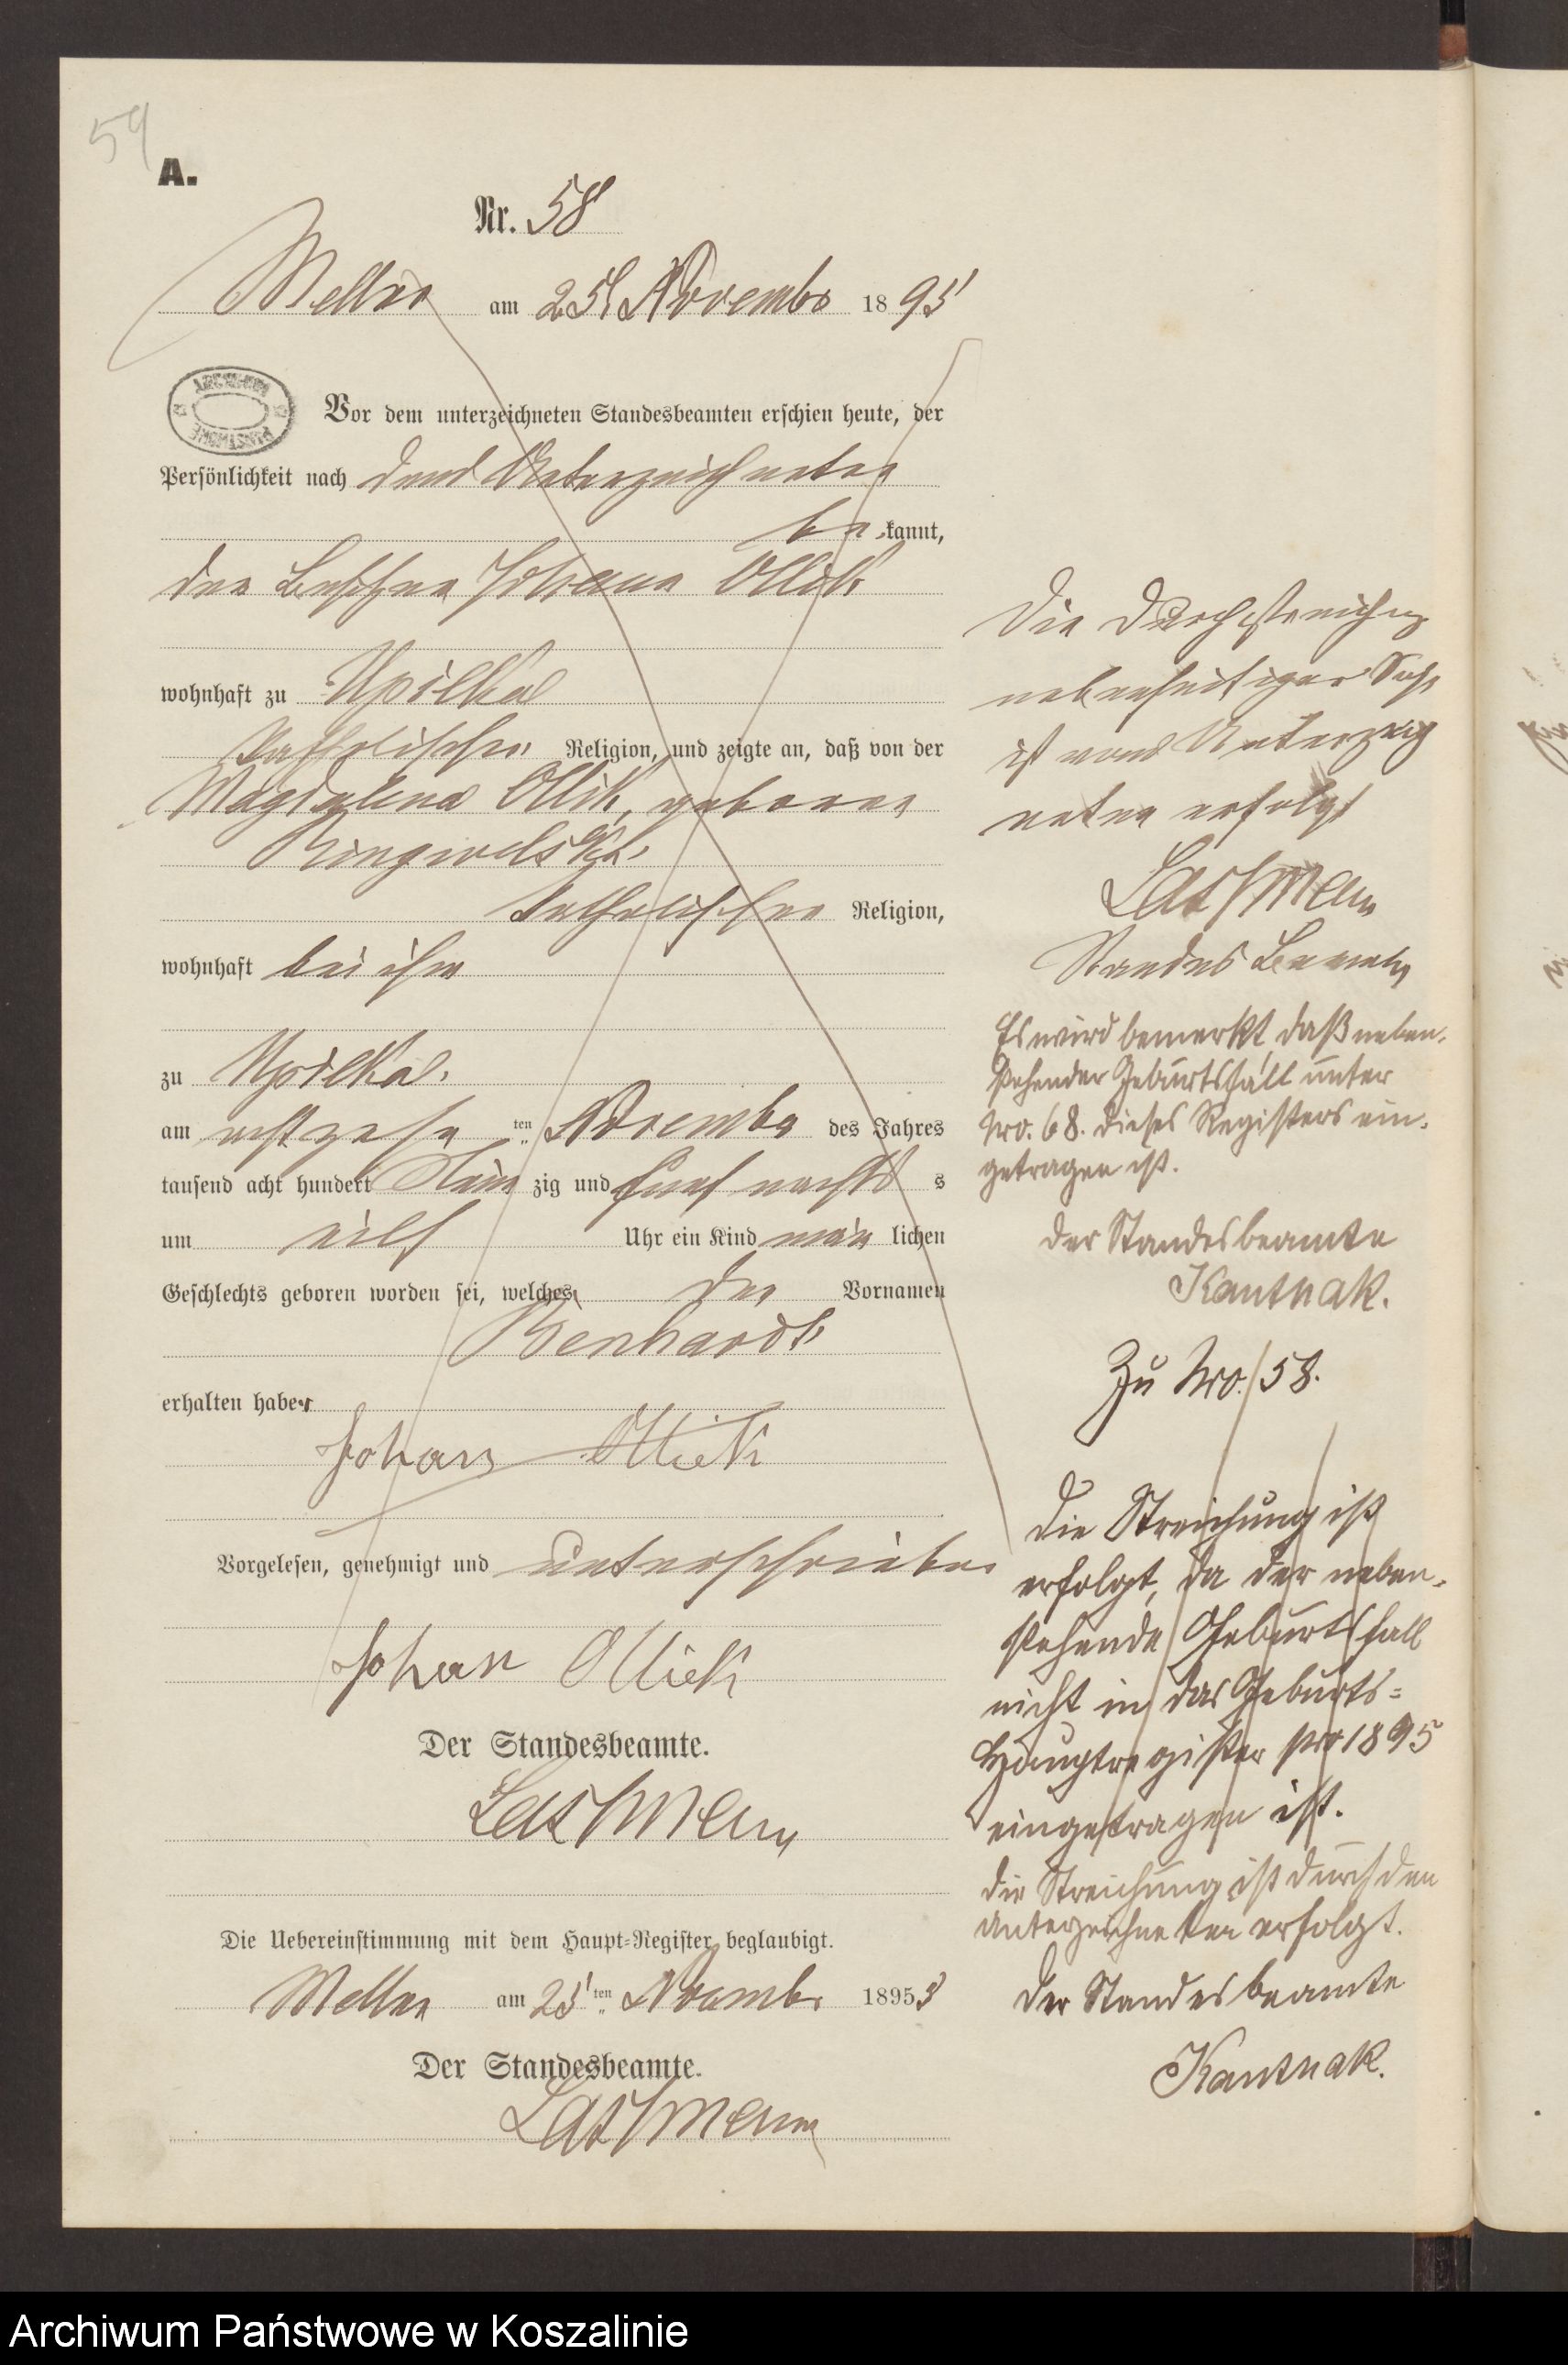 59
A.
Nr. 58
Mellen am 25 Novembr 1895
ARCHIWUM PAŃSTWOWE
Vor dem unterzeichneten Standesbeamten erschien heute, der
Persönlichkeit nach dem Unterzeichneten
be kannt,
der Besitzer Johann Ollik
wohnhaft zu Upilka
katholischer Religion, und zeigte an, daß von der
Magdalena Ollik, geboren
katholischer Religion,
wohnhaft bei ihm
zu Upilka
am achtzehn ten Novembr des Jahres
tausend acht hundert Neun zig und fünf nachts
um eilf Uhr ein Kind män lichen
Geschlechts geboren worden sei, welches den Vornamen
Benhardt
erhalten habe
Johan Ollick
Vorgelesen, genehmigt und unterschrieben
Johan Ollick
Der Standesbeamte.
Lashmann
Die Uebereinstimmung mit dem Haupt-Register beglaubigt.
Mellen am 25 ten Novembr 1895
Der Standesbeamte.
Lashmann
Die Durchstreichung
nebenseitiger
ist vom Unterzeich
neten erfolgt
Lashmann
Standes Beamter
Es wird bemerkt daß neben-
stehender Geburtsfall unter
Nro. 68. dieses Registers ein-
getragen ist.
Der Standesbeamte
Kantnak.
Zu Nro. 58.
Die Streichung ist
erfolgt, da der neben-
stehende Geburtsfall
nicht in das Geburts-
Hauptregister pro 1895
eingetragen ist.
Die Streichung ist durch den
Unterzeichneten erfolgt.
Der Standesbeamte
Kantnak.
Archiwum Państwowe w Koszalinie